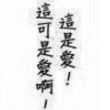 這是愛！
這可是愛啊！